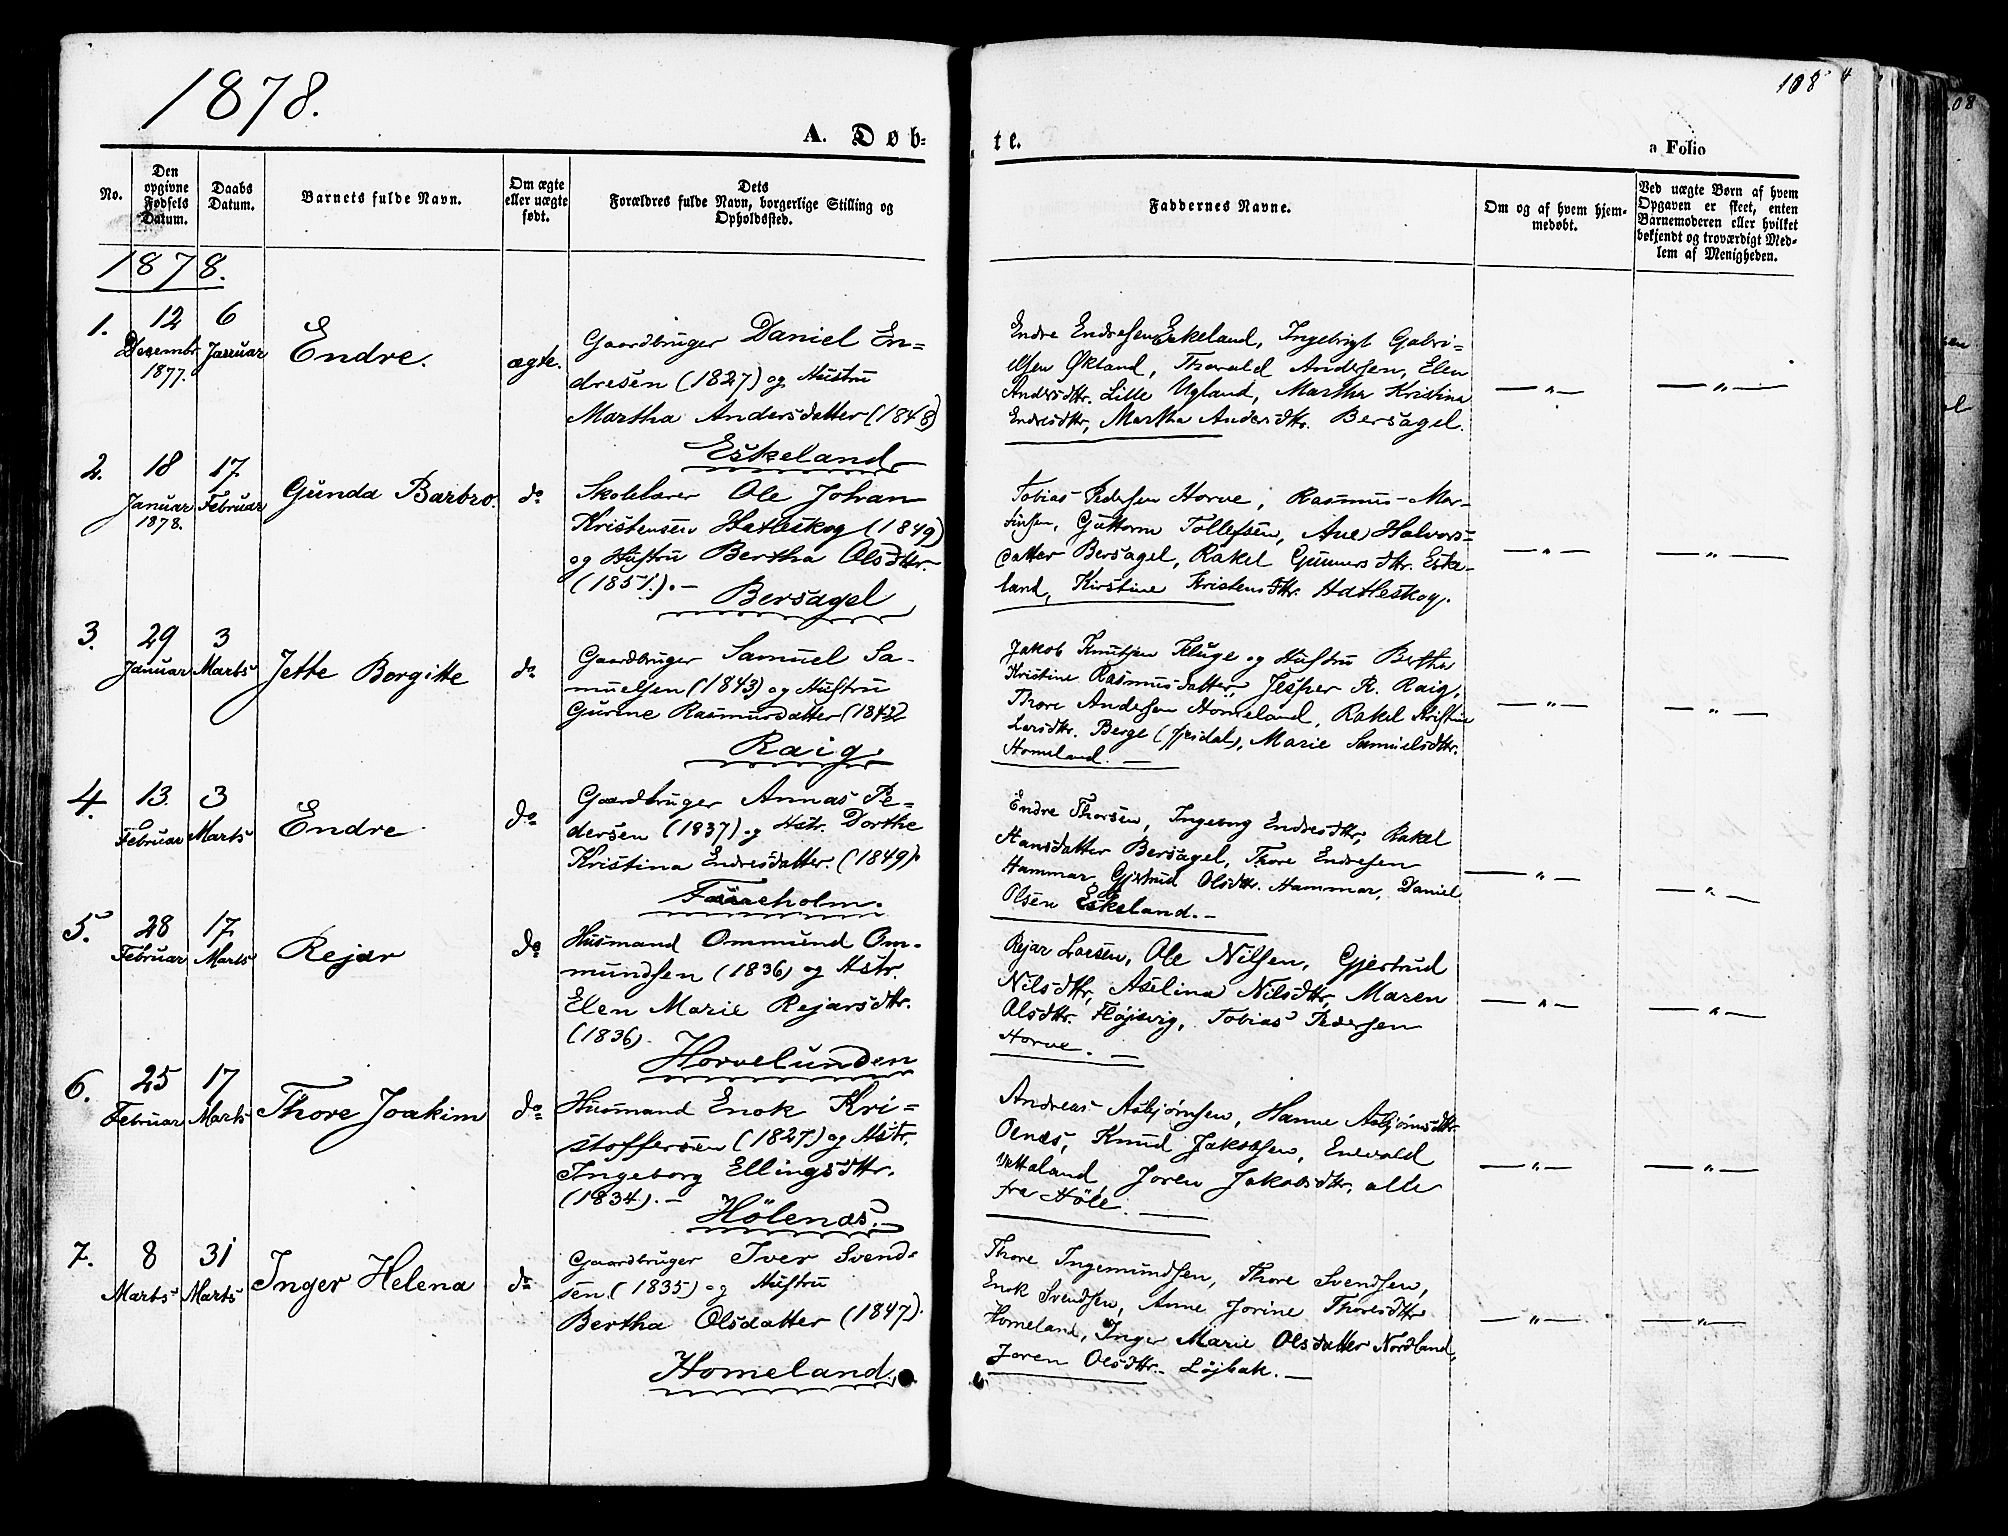 1878.
108
A. Døb-
te.
a Folio
No.
Den opgivne Fødsels Datum.
Daabs Datum.
Barnets fulde Navn.
Om ægte eller uægte født.
Dets Forældres fulde Navn, borgerlige Stilling og Opholdssted.
Faddernes Navne.
Om og af hvem hjem-
medøbt.
Ved uægte Børn af hvem
Opgaven er skeet, enten
Barnemoderen eller hvilket
bekjendt og troværdigt Med-
lem af Menigheden.
1878.
1.
12 Decembr 1877.
6 Januar
Endre.
ægte.
Gaardbruger Daniel En-
dresen (1827) og Hustru
Martha Andersdatter (1848)
Eskeland
Endre Endresen Eskeland, Ingebrigt Gabri-
elsen Økland, Thorvald Andersen, Elen
Andersdtr. Lille Ugland, Martha Kristina
Endresdtr, Martha Andersdtr. Bersagel.
— " —
— " —
2.
18 Januar 1878.
17. Februar
Gunda Barbro.
do
Skolelærer Ole Johan
Kristensen Hatleskog (1849)
og Hustru Bertha Olsdtr.
(1851.). —
Bersagel
Tobias Pedersen Horve, Rasmus Mor-
tinsen, Guttorm Tollefsen, Ane Halvors-
datter Bersagel, Rakel Gunnersdtr. Eske-
land, Kirstine Kristensdtr. Hatleskog.
— " —
— " —
3.
29 Januar
3 Marts
Jette Borgitte
do
Gaardbruger Samuel Sa-
muelsen (1843) og Hustru
Gurine Rasmusdatter (1842
Raig.
Jakob Knutsen Kluge og Hustru Bertha
Kristine Rasmusdatter, Jesper R. Raig,
Thore Andersen Homeland, Rakel Kristine
Larsdtr. Berge, Marie Samuelsdtr.
Homeland. —
— " —
— " —
4.
13. Februar
3 Marts
Endre
do
Gaardbruger Annas Pe-
dersen (1837) og Hstr. Dorthe
Kristina Endresdatter. (1849).
Faareholm.
Endre Thorsen, Ingeborg Endresdtr, Rakel
Hansdatter Bersagel, Thore Endresen
Hammar, Gjertrud Olsdtr. Hammar, Daniel
Olsen Eskeland. —
— " —
— " —
5.
28 Februar
17. Marts
Rejar
do
Husmand Ommund Om-
mundsen (1836) og Hstr.
Elen Marie Rejarsdtr.
(1836).
Horvelunden
Rejar Larsen, Ole Nilsen, Gjertrud
Nilsdtr, Aselina Nilsdtr, Maren
Olsdtr. Fløjsvig, Tobias Pedersen
Horve. —
— " —
— " —
6.
25 Februar
17 Marts
Thore Joakim
do
Husmand Enok Kri-
stoffersen (1827.) og Hstr.
Ingeborg Ellingsdtr.
(1834). —
Hølenæs. —
Andreas Asbjørnsen, Hanne Asbjørnsdtr.
Oenæs, Knud Jakobsen, Enevald
Vattaland, Joren Jakobsdtr, alle
fra Høle. —
— " —
— " —
7.
8 Marts
31 Marts
Inger Helena
do
Gaardbruger Iver Svend-
sen. (1835) og Hustru
Bertha Olsdatter (1847).
Homeland.
Thore Ingemundsen, Thore Svendsen,
Enok Svendsen, Anne Jorine Thoresdtr
Homeland, Inger Marie Olsdatter Nordland,
Joren Olsdtr. Løjbak. —
— " —
— " —